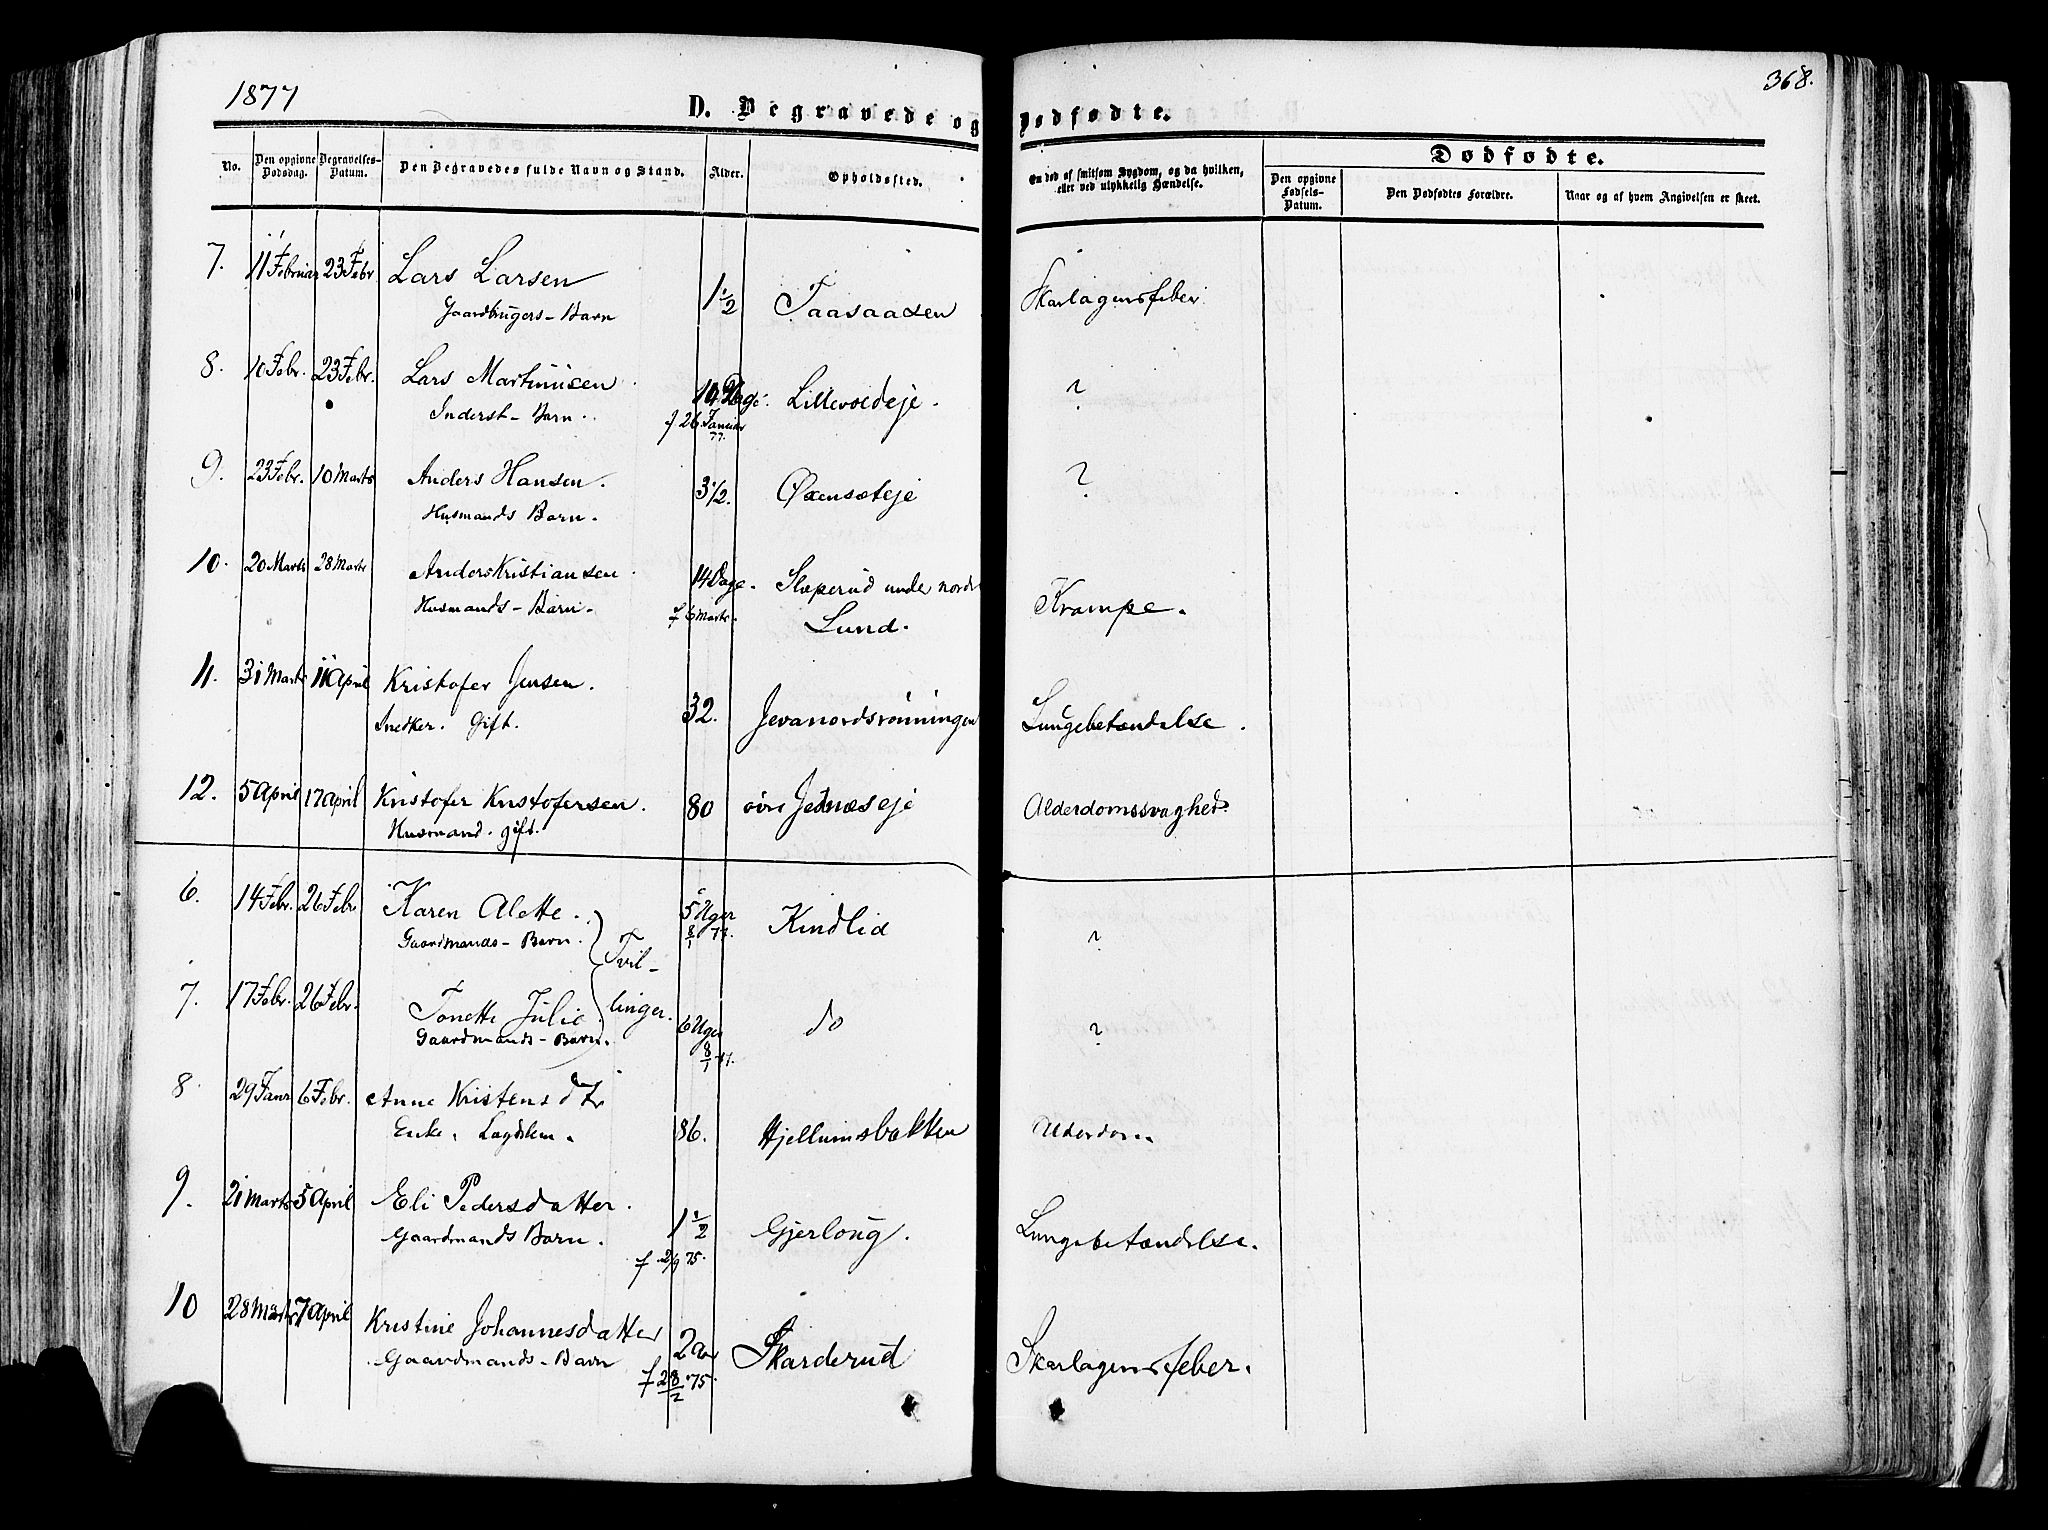 1877
368.
D. Begravede og Dødfødte.
No. Den opgivne Dødsdag. Begravelses-Datum. Den Begravedes fulde Navn og Stand. Alder. Opholdssted. En død af smitsom Sygdom, og da hvilken, eller ved ulykkelig Hændelse. Dødfødte.
Den opgivne Fødsels-Datum. Den Dødfødtes Forældre. Naar og af hvem Angivelsen er skeet.
7. 11 Februar 23 Febr Lars Larsen 1 1/2 Taasaasen Skarlagensfeber
Gaardbrugers-Barn
8. 10 Febr. 23 Febr. Lars Martinusen Dage. Lillevoldeje. ?
Inderst-Barn. f 26 Januar 77.
9. 23 Febr. 10 Marts Anders Hansen. 3 1/2. Øxensæteje ?
Husmands Barn.
10. 20 Marts 28 Marts Anders Kristiansen 14 Dage. Slæperud under nordre Lund. Krampe.
Husmands-Barn. f 6 Marts.
11. 31 Marts 11 April Kristofer Jensen. 32. Jevanordsrønningen Lungebetændelse.
Snedker. Gift.
12. 5 April 17 April Kristofer Kristofersen. 80 øvre Jednæseje Alderdomssvaghed.
Husmand. gift.
6. 14 Febr. 26 Febr. Karen Alette. 5 Uger Kindlid ?
Gaardmands-Barn. 8/1 77.
Tvil-
7. 17 Febr. 26 Febr. Tonette Julie linger. 6 Uger do ?
Gaardmands-Barn. 8/1 77.
8. 29 Janr 6 Febr. Anne Kristensdtr 86. Hjellumsbakken Alderdom.
Enke. Lægdslem.
9. 21 Marts 5 April Eli Pedersdatter. 1 1/2 Gjerloug. Lungebetændelse.
Gaardmands Barn. f 2/9 75.
10 28 Marts 7 April Kristine Johannesdatter 2 Aar Skarderud Skarlagensfeber.
Gaardmands-Barn f 28/2 75.